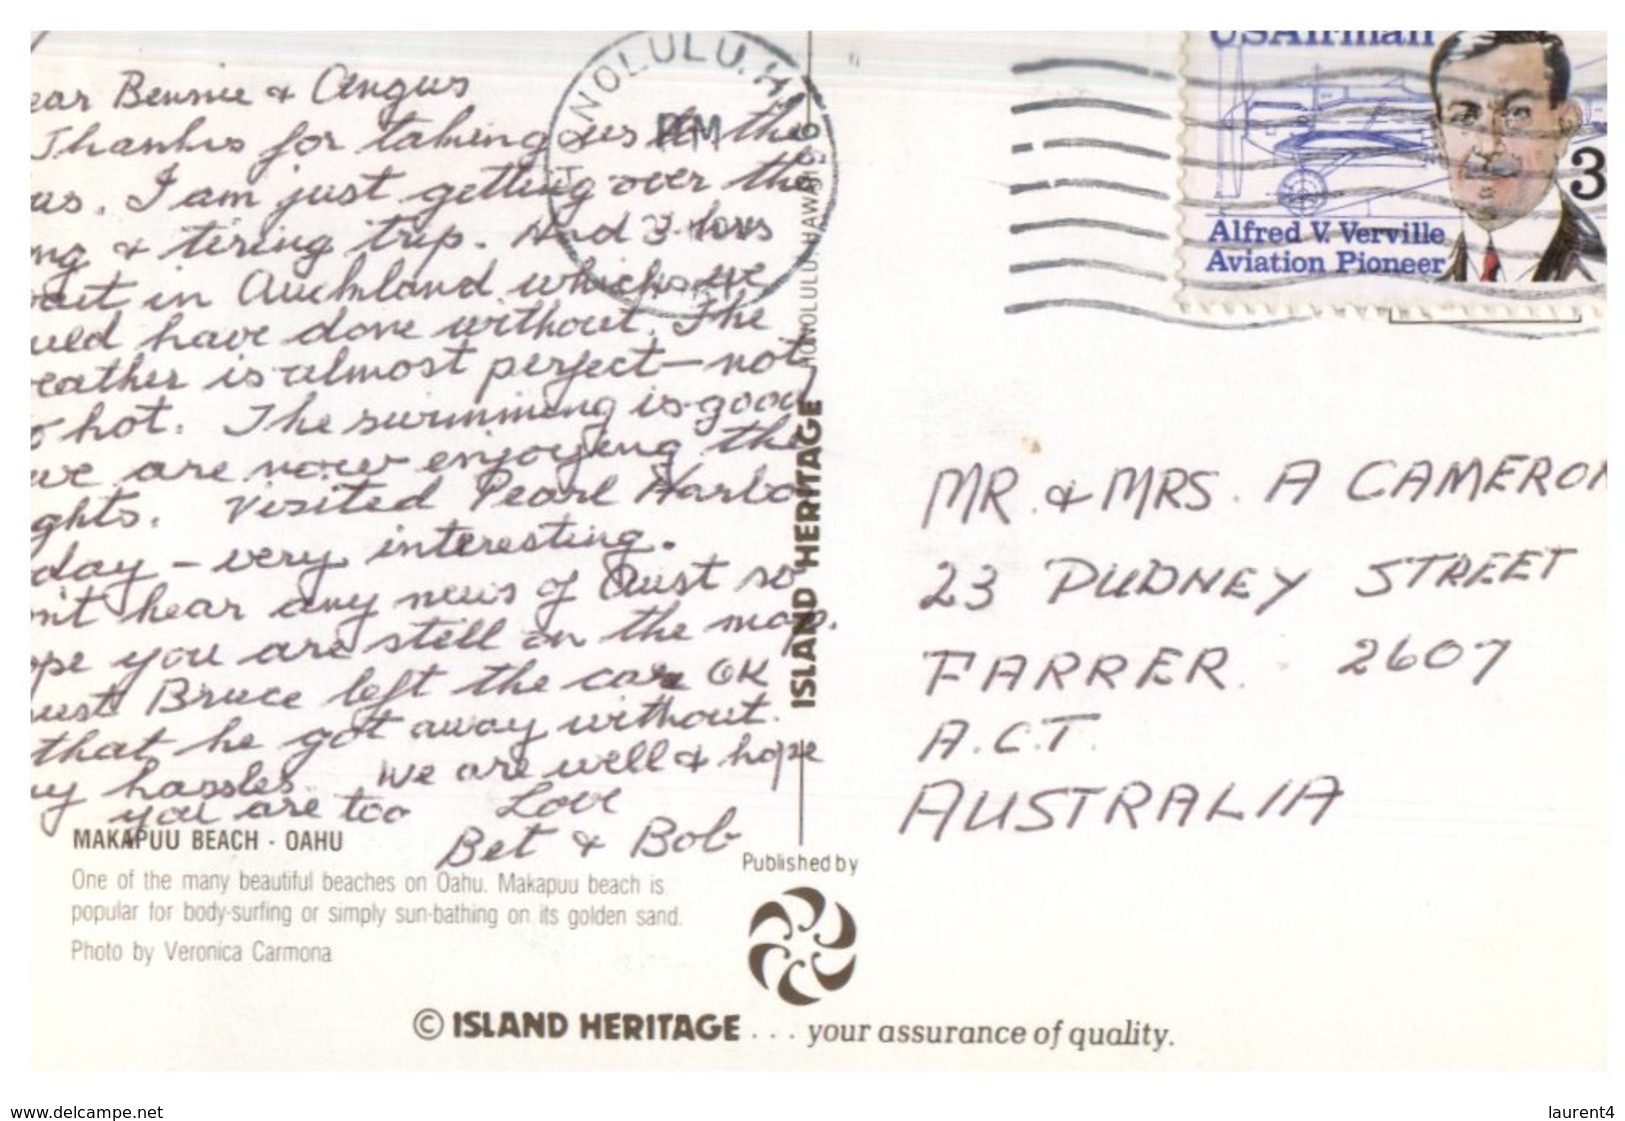 ear Bennie & Angus
Thanks for taking us to the
us. I am just getting over the
ng & tiring trip. And 3 hours
ait in Auckland which we
uld have done without. The
eather is almost perfect - not
o hot. The swimming is good
we are now enjoying the
ghts. Visited Pearl Harbo
day - very interesting.
n't hear any news of Aust so
ope you are still on the map.
ust Bruce left the car OK
that he got away without
ny hassles. We are well & hope
you are too Love
Bet & Bob
MAKAPUU BEACH - OAHU
One of the many beautiful beaches on Oahu. Makapuu beach is
popular for body-surfing or simply sun-bathing on its golden sand.
Photo by Veronica Carmona
HONOLULU, HI
PM
HONOLULU, HAWAII
ISLAND HERITAGE
Published by
© ISLAND HERITAGE . . . your assurance of quality.
USAirmail
3
Alfred V. Verville
Aviation Pioneer
MR & MRS. A CAMERON
23 PUDNEY STREET
FARRER. 2607
A.C.T.
AUSTRALIA
www.delcampe.net
laurent4